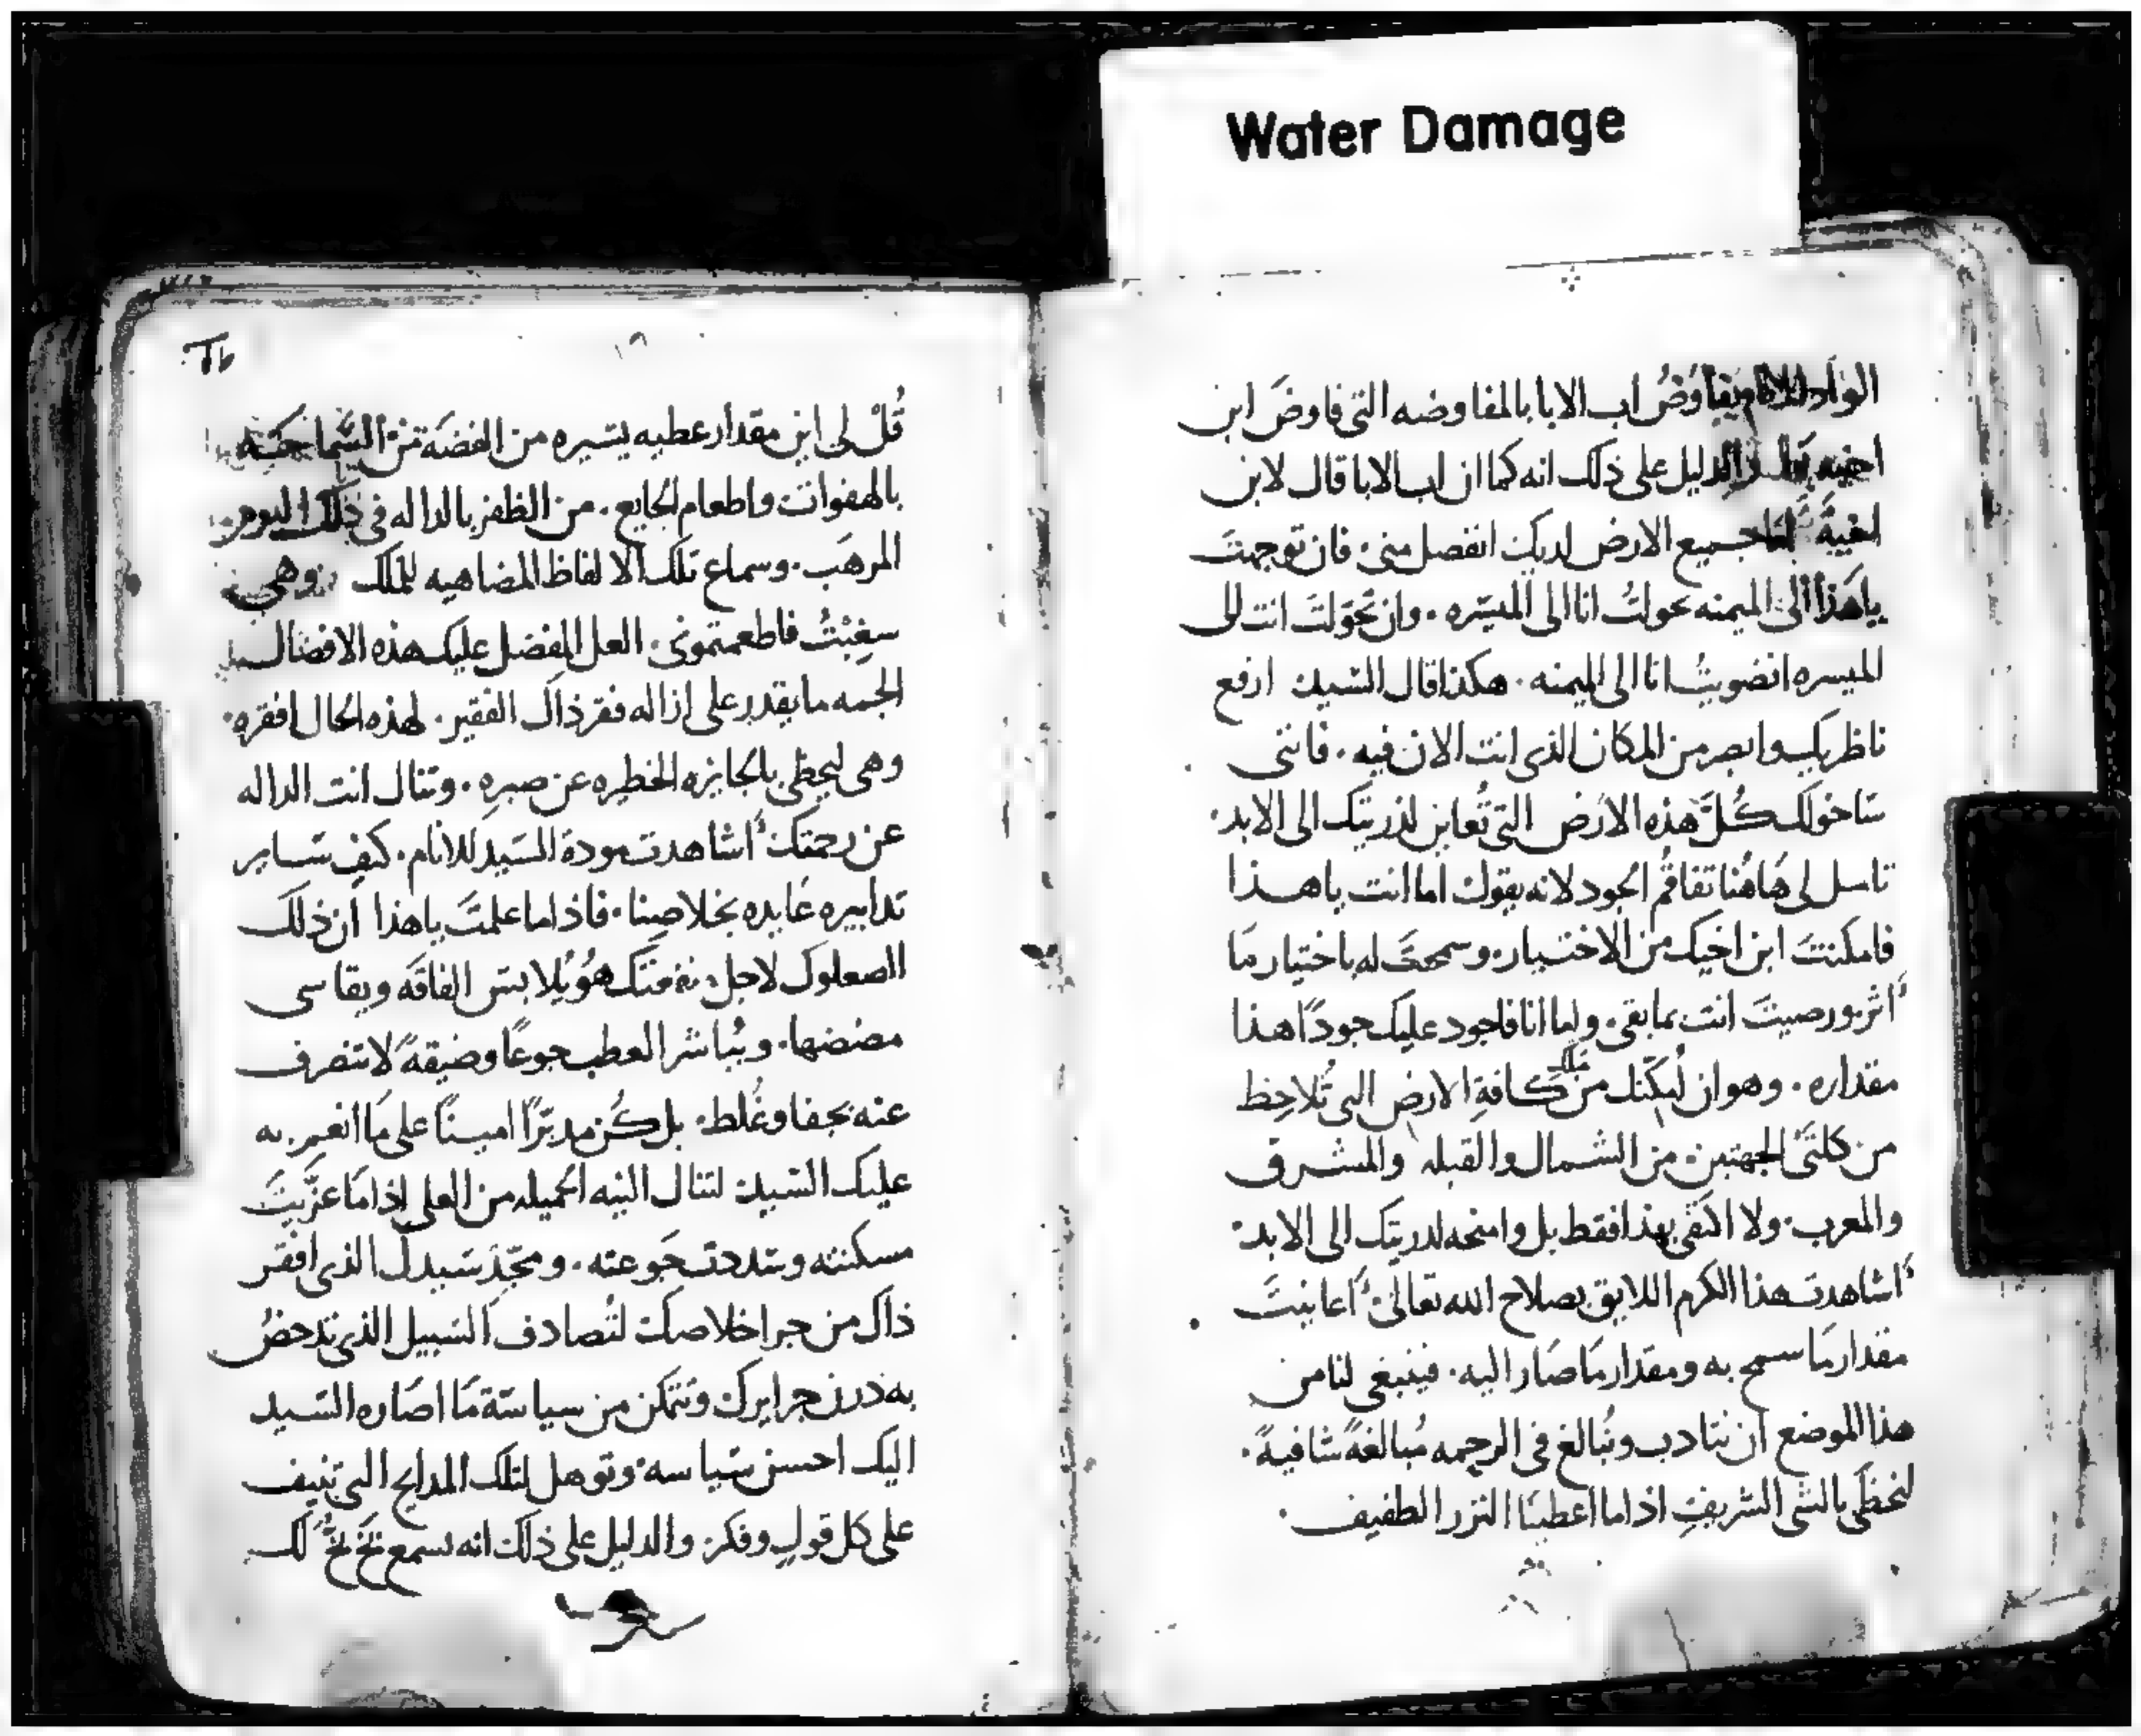 Water Damage
يفاوض اب الابا بالمفاوضه التى فاوض ابن
الدليل على ذلك انه كما ان اب الابا قال لابن
اخيه جميع الارض لديك انفصل منى. فان توجهت
ياهذا الى الميمنه تحولتُ انا الى الميسره. وان تحولتَ انت الى
الميسره انضويتُ انا الى الميمنه. هكذا قال السيد ارفع
ناظريك وابصر من المكان الذى انت الان فيه. فاننى
ساخولك كُلَّ هذه الارض التى تُعاين لذريتك الى الابد.
تامل لى هَاهُنا تفاقُم الجود لانه يقول اما انت ياهذا
فامكنتَ ابن اخيك من الاختيار. وسمحتَ له باختيار مَا
أثر. ورضيتَ انت بما بقى. واما انا فاجود عليك جودًا هذا
مقداره. وهو ان امكنك من تملك كافةِ الارض التى تُلاحِظ
من كلتَى الجهتين. من الشمال والقبله والمشرق
والمغرب. ولا اكتفى بهذا فقط بل وامنحه لذريتك الى الابد.
أشاهدت هذا الكرم اللايق بصلاح الله تعالى أعاينتَ
مقدار مَا سمح به ومقدار مَا صَار اليه. فينبغى لنا من
هذا الموضع ان نتادب ونُبالغ فى الرحمه مُبالغةً شافيةً.
لنحظَى بالشى الشريفِ اذا ما اعطينَا النزر الطفيف.
قُلْ لى اين مقدار عطيه يسيره من الفضَة من السَّما
بالهفوات واطعام الجايع. من الظفر بالداله فى ذلك اليوم
المرهَب. وسماع تلك الالفاظ المضاهيه للملك. وهى
سغِبْتُ فاطعمتمونى. العل المفضل عليك هذه الافضال
الجمه ما يقدر على ازاله فقر ذاك الفقير. لهذه الحال افقره.
وهى ليحظى بالجايزه الخطيره عن صبرِه. وتنال انت الداله
عن رحمتك أشاهدت مودة السَيد للانام. كيف سَاير
تدابيره عَايده بخلاصِنا. فاذا ما علمتَ ياهذا ان ذلك
الصعلوك لاجل منفعتك هُوَ يُلابس الفاقَه ويقاسى
مضضها. ويُباشر العطب جوعًا وضيقةً لا تنصرف
عنه بجفا وغُلط. بل كُن مدبّرًا امينًا على مَا انعم به
عليك السَيد لتنال النيه الجميله من العلى اذا مَا عزّيتَ
مسكنته وسَددتَ جَوعته. ومجّدِ سَيدك الذى افقر
ذاك من جرا خلاصك لتُصادف السَبيل الذى تدحضُ
به درن جرايرك وتتمكن من سياسَة مَا اصَاره السَيد
اليك احسن سَياسه. وتوهل لتلك المدايح التى تنيف
على كل قولٍ وفكر. والدليل على ذلك انه نسمع بَخٍ بخٍ لك